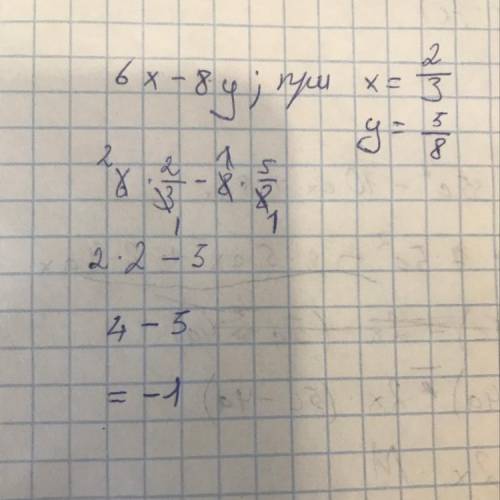 6x - 8y; при x = 2/3
y = 5/8
6 2 · 2/3 1 - 8 1 · 5/8 1
2 · 2 - 5
4 - 5
= -1